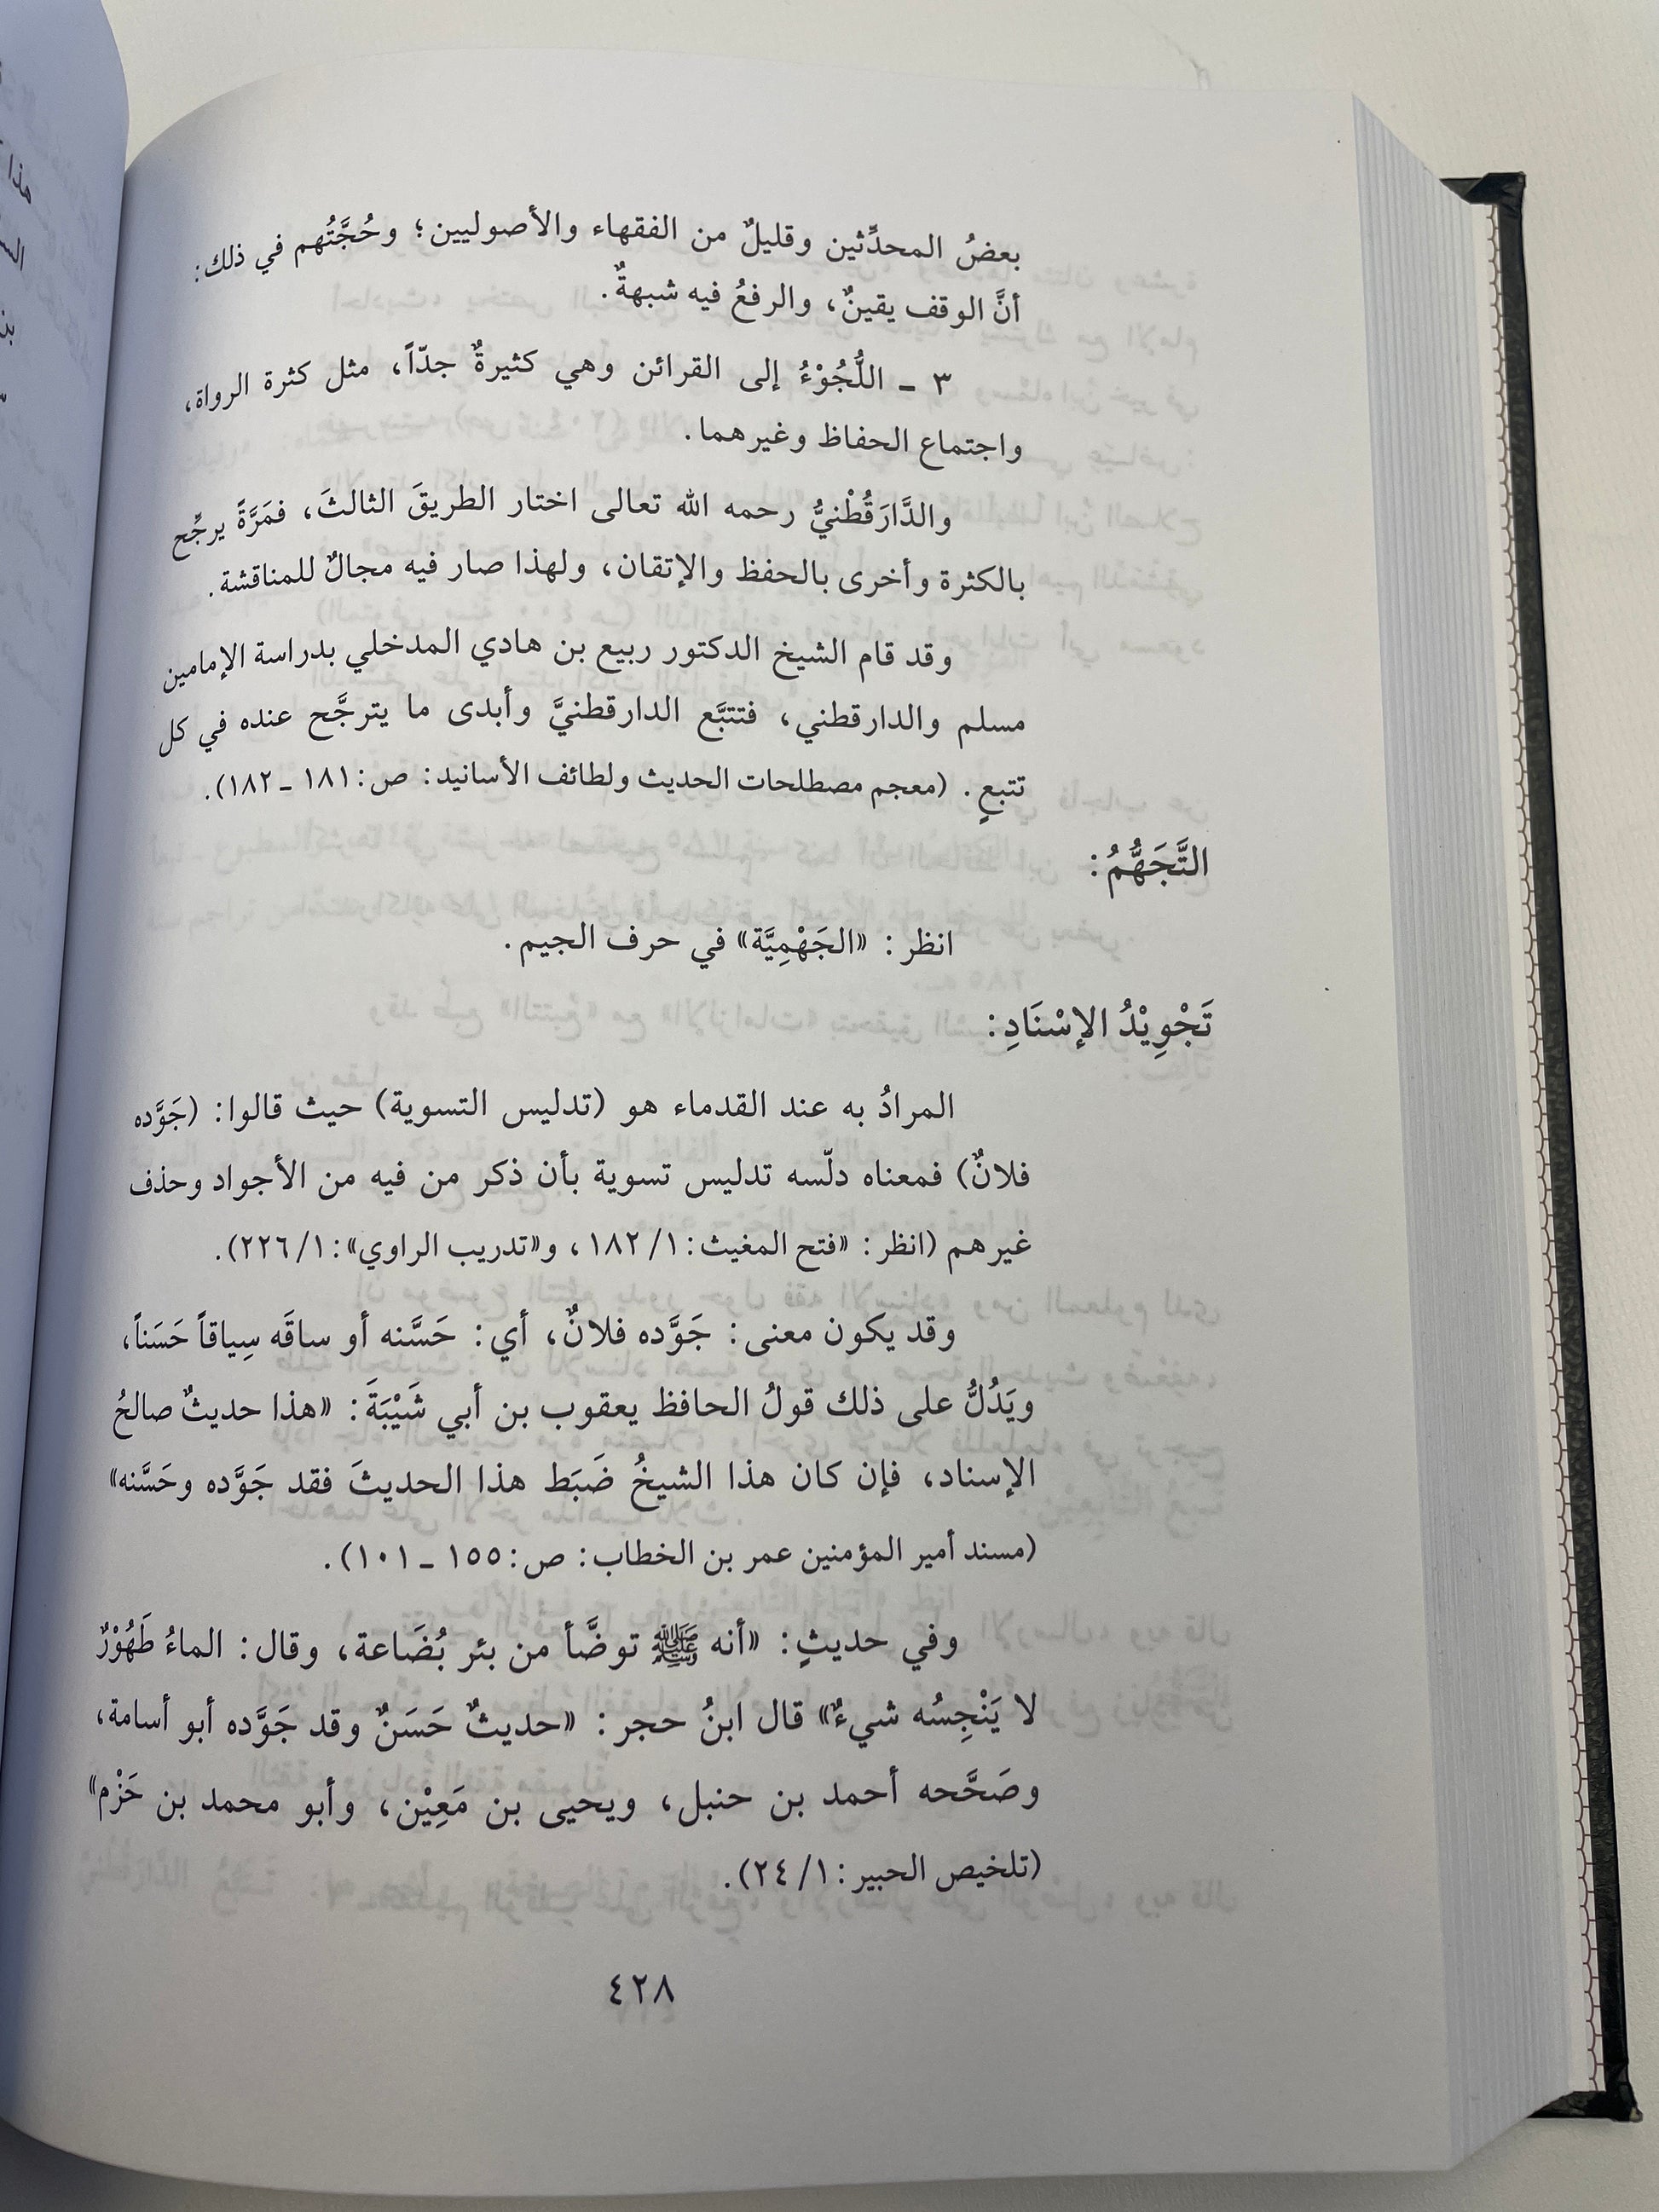 بعضُ المحدِّثين وقليلٌ من الفقهاء والأصوليين؛ وحُجَّتُهم في ذلك:
أنَّ الوقف يقينٌ، والرفعُ فيه شبهةٌ.
٣ ـ اللُّجُوْءُ إلى القرائن وهي كثيرةٌ جدّاً، مثل كثرة الرواة،
واجتماع الحفاظ وغيرهما.
والدَّارَقُطْنيُّ رحمه الله تعالى اختار الطريقَ الثالثَ، فمَرَّةً يرجِّح
بالكثرة وأخرى بالحفظ والإتقان، ولهذا صار فيه مجالٌ للمناقشة.
وقد قام الشيخ الدكتور ربيع بن هادي المدخلي بدراسة الإمامين
مسلم والدارقطني، فتتبَّع الدارقطنيَّ وأبدى ما يترجَّح عنده في كل
تتبعٍ. (معجم مصطلحات الحديث ولطائف الأسانيد: ص: ١٨١ ـ ١٨٢).
التَّجَهُّمُ:
انظر: «الجَهْمِيَّة» في حرف الجيم.
تَجْوِيْدُ الإسْنَادِ:
المرادُ به عند القدماء هو (تدليس التسوية) حيث قالوا: (جَوَّده
فلانٌ) فمعناه دلّسه تدليس تسوية بأن ذكر من فيه من الأجواد وحذف
غيرهم (انظر: «فتح المغيث: ١/ ١٨٢، و«تدريب الراوي»: ١/ ٢٢٦).
وقد يكون معنى: جَوَّده فلانٌ، أي: حَسَّنه أو ساقَه سِياقاً حَسَناً،
ويَدُلُّ على ذلك قولُ الحافظ يعقوب بن أبي شَيْبَةَ: «هذا حديثٌ صالحُ
الإسناد، فإن كان هذا الشيخُ ضَبَط هذا الحديثَ فقد جَوَّده وحَسَّنه»
(مسند أمير المؤمنين عمر بن الخطاب: ص: ١٥٥ ـ ١٠١).
وفي حديثٍ: «أنه ﷺ توضَّأ من بئر بُضَاعة، وقال: الماءُ طَهُوْرٌ
لا يَنْجِسُه شيءٌ» قال ابنُ حجر: «حديثٌ حَسَنٌ وقد جَوَّده أبو أسامة،
وصَحَّحه أحمد بن حنبل، ويحيى بن مَعِيْن، وأبو محمد بن حَزْم»
(تلخيص الحبير: ١/ ٢٤).
٤٢٨